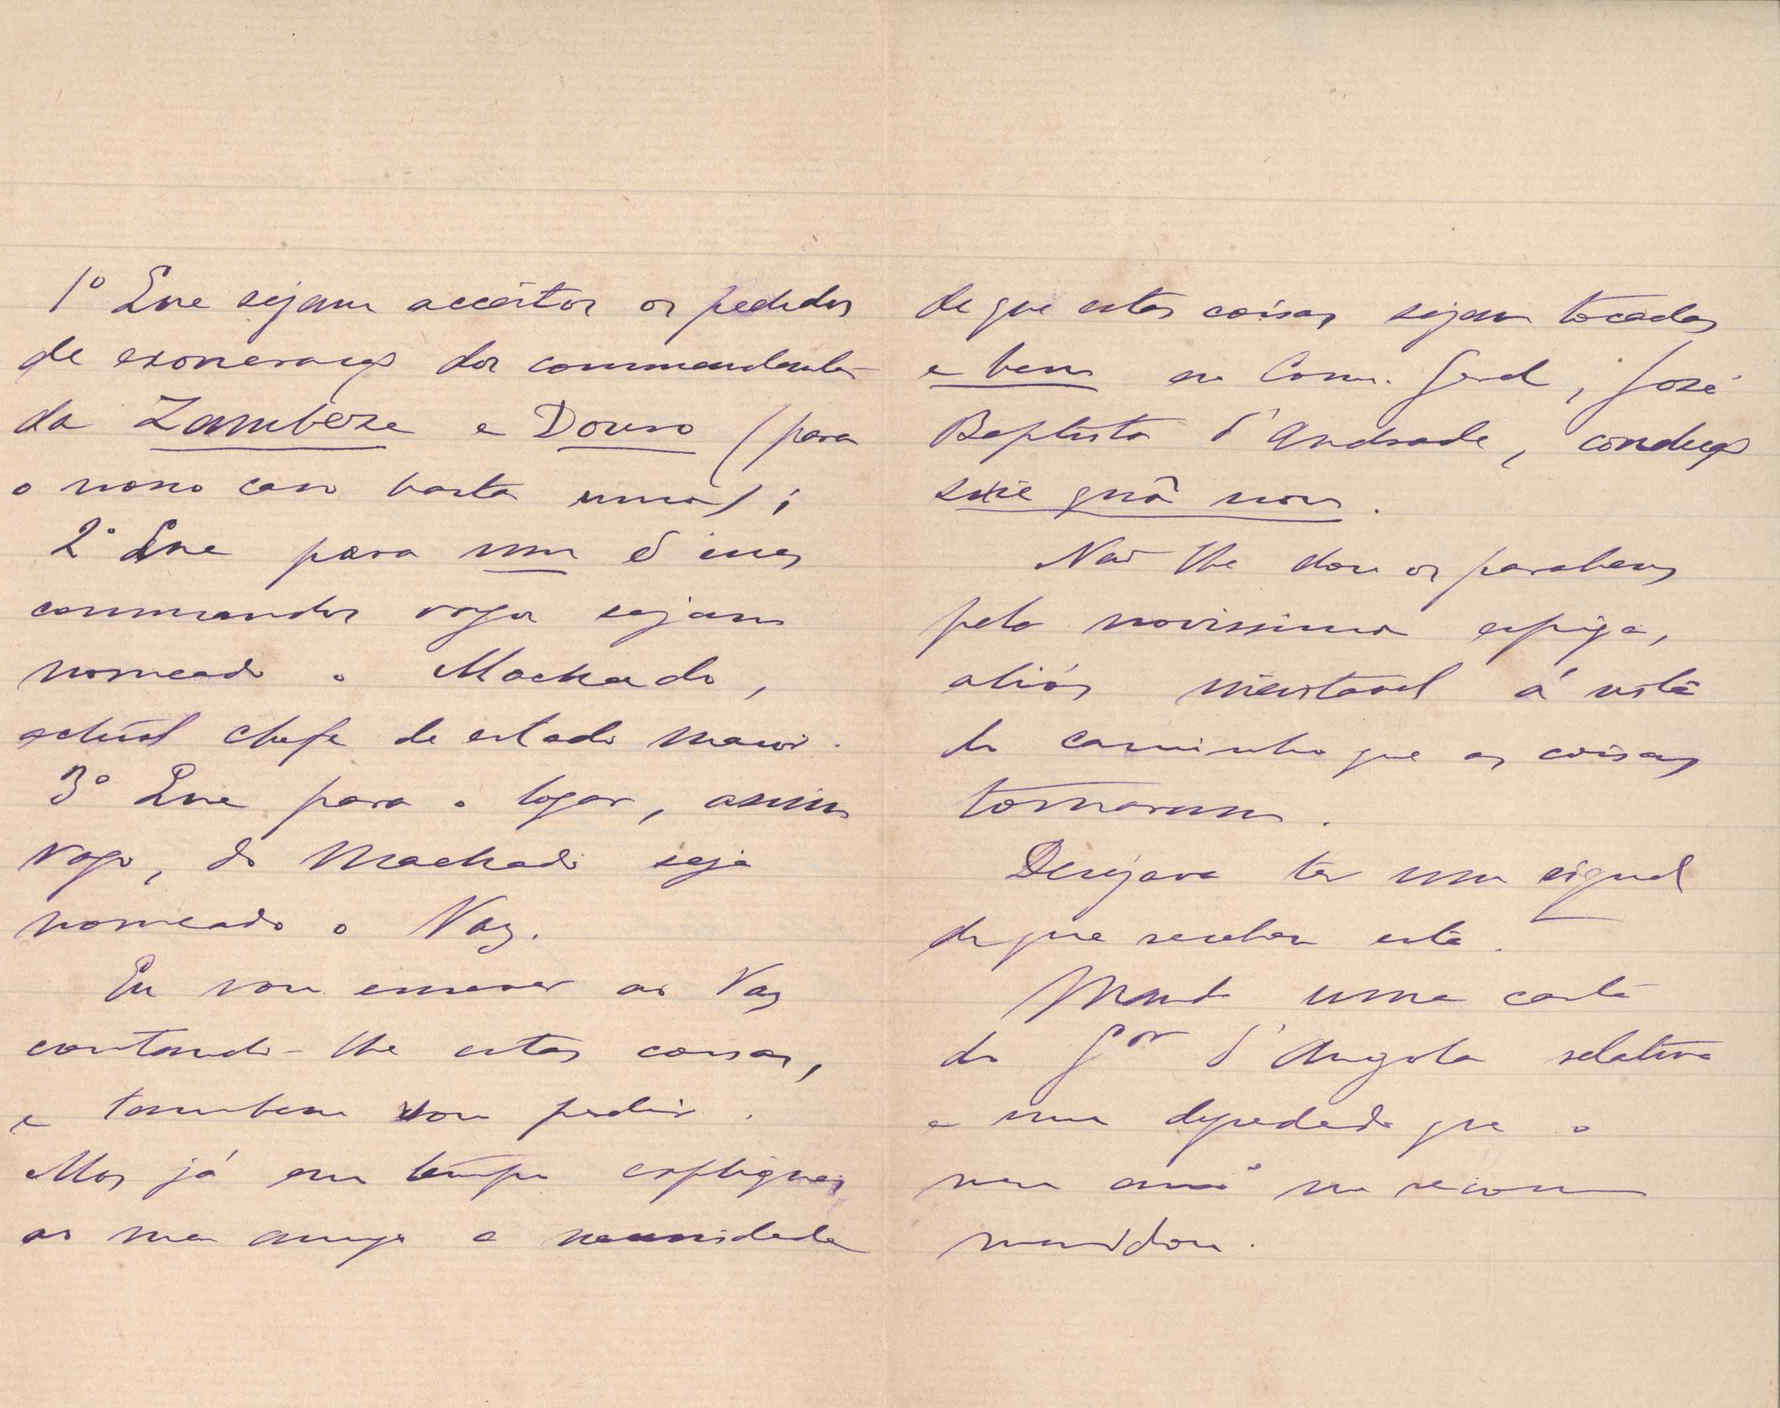 1º Que sejam acceitos os pedidos
de exoneração dos commandantes
da Zambeze e Douro (para
o nosso caso basta uma);
2º Que para um d'esses
commandos vagos sejam
nomeado o Machado,
actual chefe de estado maior.
3º Que para o logar, assim
vago, do Machado seja
nomeado o Vaz.
Eu vou escrever ao Vaz
contando-lhe estas cousas,
e tambem vou pedir.
Mas já em tempo expliquei
ao meu amigo a necessidade
de que estas coisas sejam tocadas
e bem ao Com. Geral, José
Baptista d'Andrade, condição
sine quâ non.
Não lhe dou os parabens
pela novissima espiga,
aliás inevitavel á vista
do caminho que as coisas
tomaram.
Desejava ter um signal
de que recebeu esta.
Mando uma carta
do Gor d'Angola relativa
a um degredado que o
meu amº me recom
mendou.